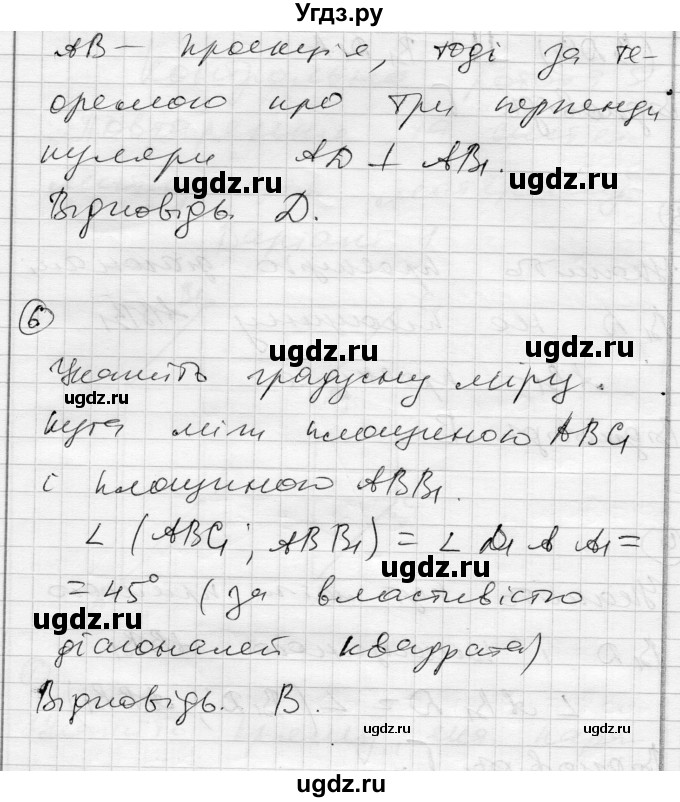 Угдз.ру
AB — проекція, тоді за те-
оремою про три перпенди
куляри AD ⊥ AB₁.
ugdz.ru ugdz.ru
Відповідь. D.
6
ugdz.ru
Укажіть градусну міру
ugdz.ru ugdz.ru
кута між площиною ABC₁
і площиною ABB₁.
∠ (ABC₁; ABB₁) = ∠ D₁AA₁ =
ugdz.ru
= 45° (за властивістю
ugdz.ru
діагоналей квадрата)
Відповідь. В.
ugdz.ru ugdz.ru
ugdz.ru
ugdz.ru